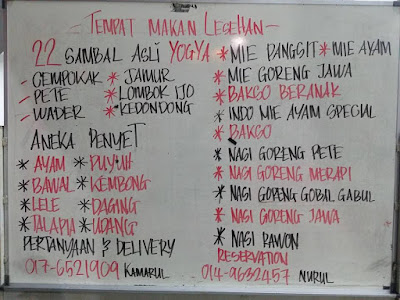 - TEMPAT MAKAN LESEHAN -
22 SAMBAL ASLI YOGYA
- CEMPOKAK * JAMUR
- PETE * LOMBOK IJO
- WADER * KEDONDONG
ANEKA PENYET
* AYAM * PUYUH
* BAWAL * KEMBONG
* LELE * DAGING
* TALAPIA * UDANG
PERTANYAAN & DELIVERY
017-6521909 KAMARUL
* MIE PANGSIT * MIE AYAM
* MIE GORENG JAWA
* BAKSO BERANAK
* INDO MIE AYAM SPECIAL
* BAKSO
* NASI GORENG PETE
* NASI GORENG MERAPI
* NASI GORENG GOBAL GABUL
* NASI GORENG JAWA
* NASI RAWON
RESERVATION
014-9632457 NURUL